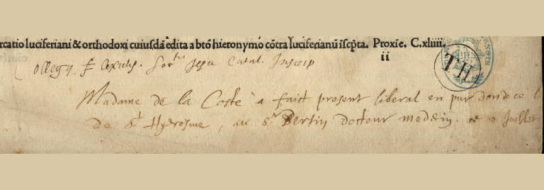 rcatio luciferani & orthodoxi cuiusdā edita a btō hieronymo cōtra luciferanū īscpta. Proxīe. C.xliiii.
ii
TH
Soc. Jesu Catal. Inscrip
Madame de la Coste a fait present liberal en pur don de ce l
de St Hyerosme, au Sr Bertin docteur medecin. ce 2 Juillet